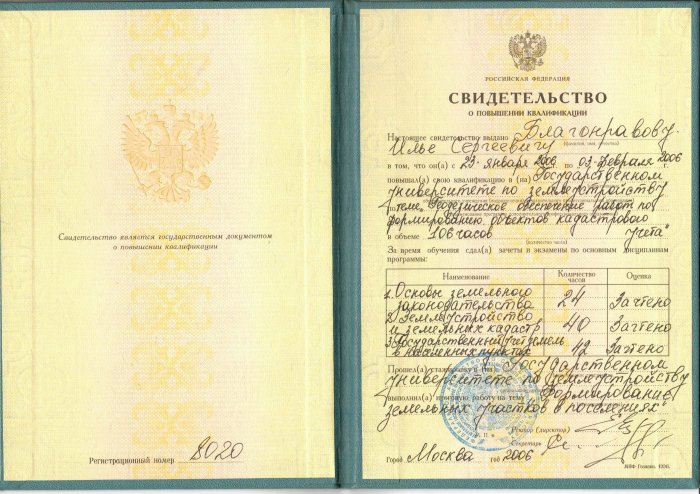 Свидетельство является государственным документом
о повышении квалификации
Регистрационный номер 8020
РОССИЙСКАЯ ФЕДЕРАЦИЯ
СВИДЕТЕЛЬСТВО
О ПОВЫШЕНИИ КВАЛИФИКАЦИИ
Настоящее свидетельство выдано Благонравову
Илье Сергеевичу
(фамилия, имя, отчество)
в том, что он(а) с 23 января 2006 по 03 февраля 2006 г.
повышал(а) свою квалификацию в (на) Государственном
университете по землеустройству
по теме „Геодезическое обеспечение работ по
формированию объектов кадастрового
в объеме 106 часов учета"
(количество часов)
За время обучения сдал(а) зачеты и экзамены по основным дисциплинам
программы:
Наименование Количество часов Оценка
1. Основы земельного
законодательства 24 Зачтено
2. Землеустройство
и земельных кадастр 40 Зачтено
3. Государственный учет земель
в населенных пунктах 42 Зачтено
Прошел(а) стажировку в (на) Государственном
университете по землеустройству
выполнил(а) итоговую работу на тему „Формирование
земельных участков в поселениях"
Ректор (директор)
М.П.
Секретарь
Город Москва год 2006